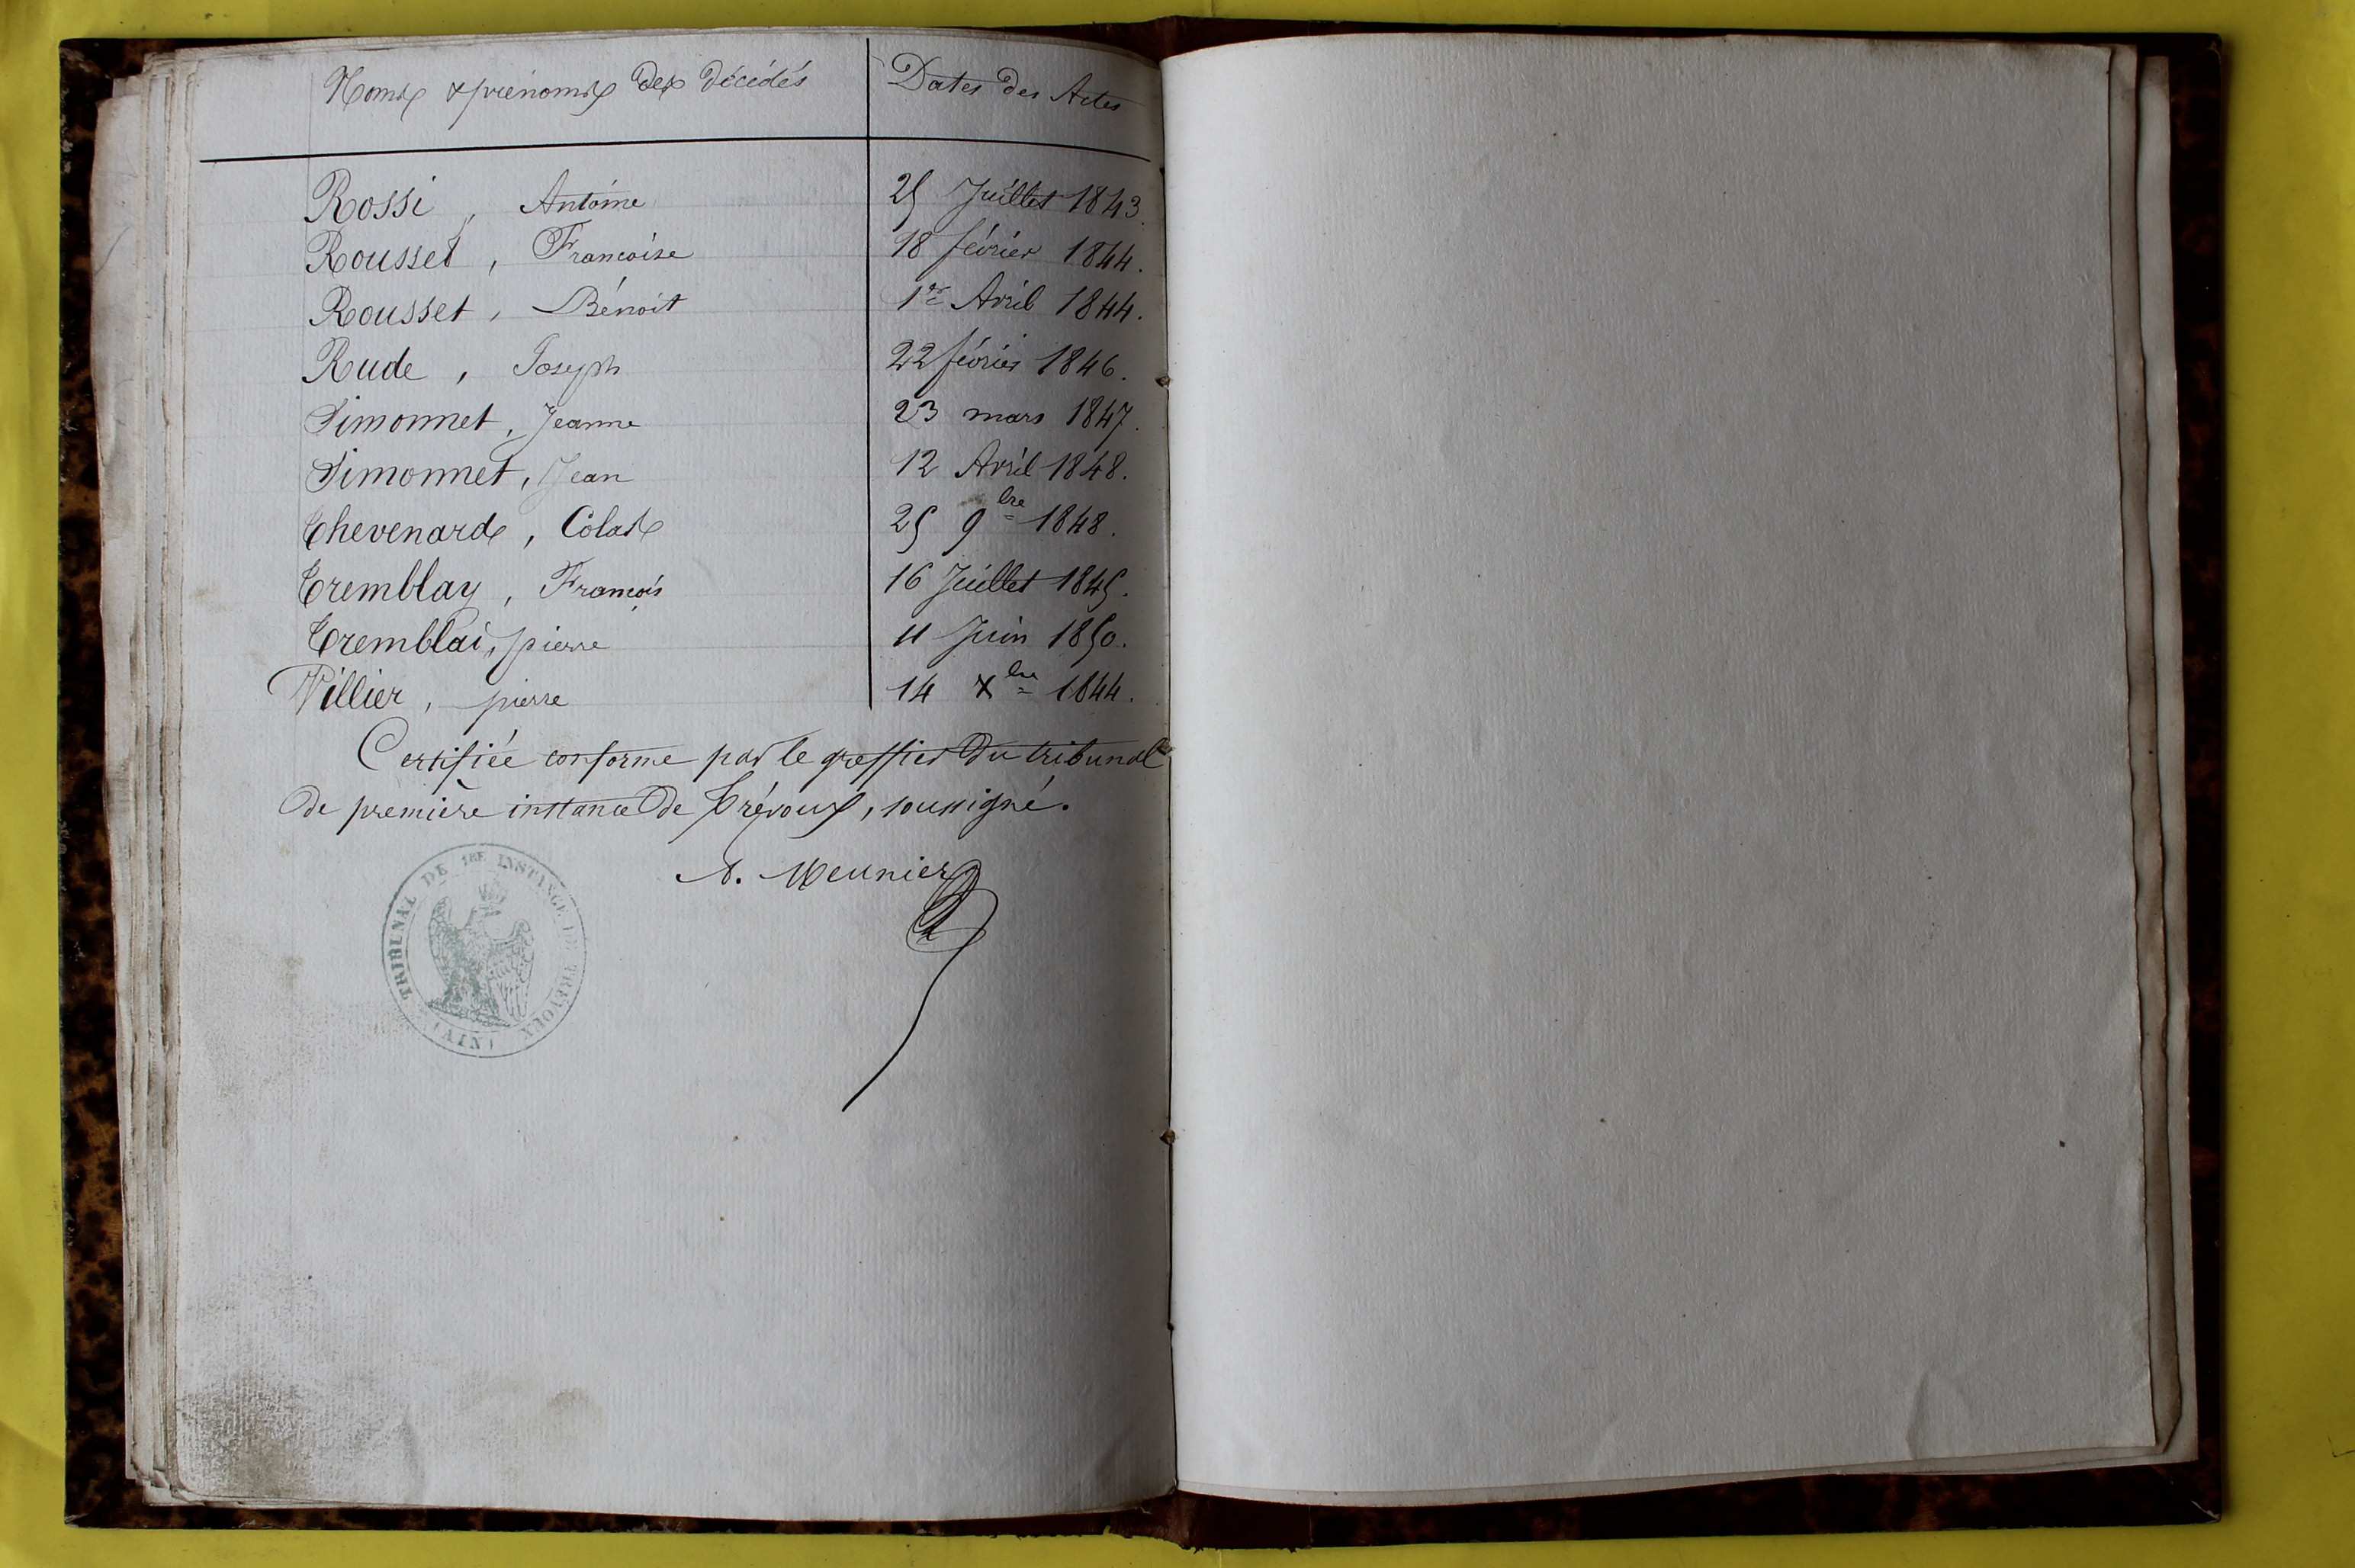 Noms & prénoms des décédés Dates des Actes
Rossi, Antoine 25 Juillet 1843.
Rousset, Francoise 18 février 1844.
Rousset, Bénoit 1er Avril 1844.
Rude, Joseph 22 février 1846.
Simonnet, Jeanne 23 mars 1847.
Simonnet, Jean 12 Avril 1848.
Thevenard, Colas 25 9bre 1848.
Tremblay, François 16 Juillet 1845.
Tremblai, pierre 11 Juin 1850.
Villier, pierre 14 Xbre 1844.
Certifiée conforme par le greffier du tribunal
de première instance de Trévoux, soussigné.
A. Meunier
TRIBUNAL DE 1RE INSTANCE DE TREVOUX
(AIN)